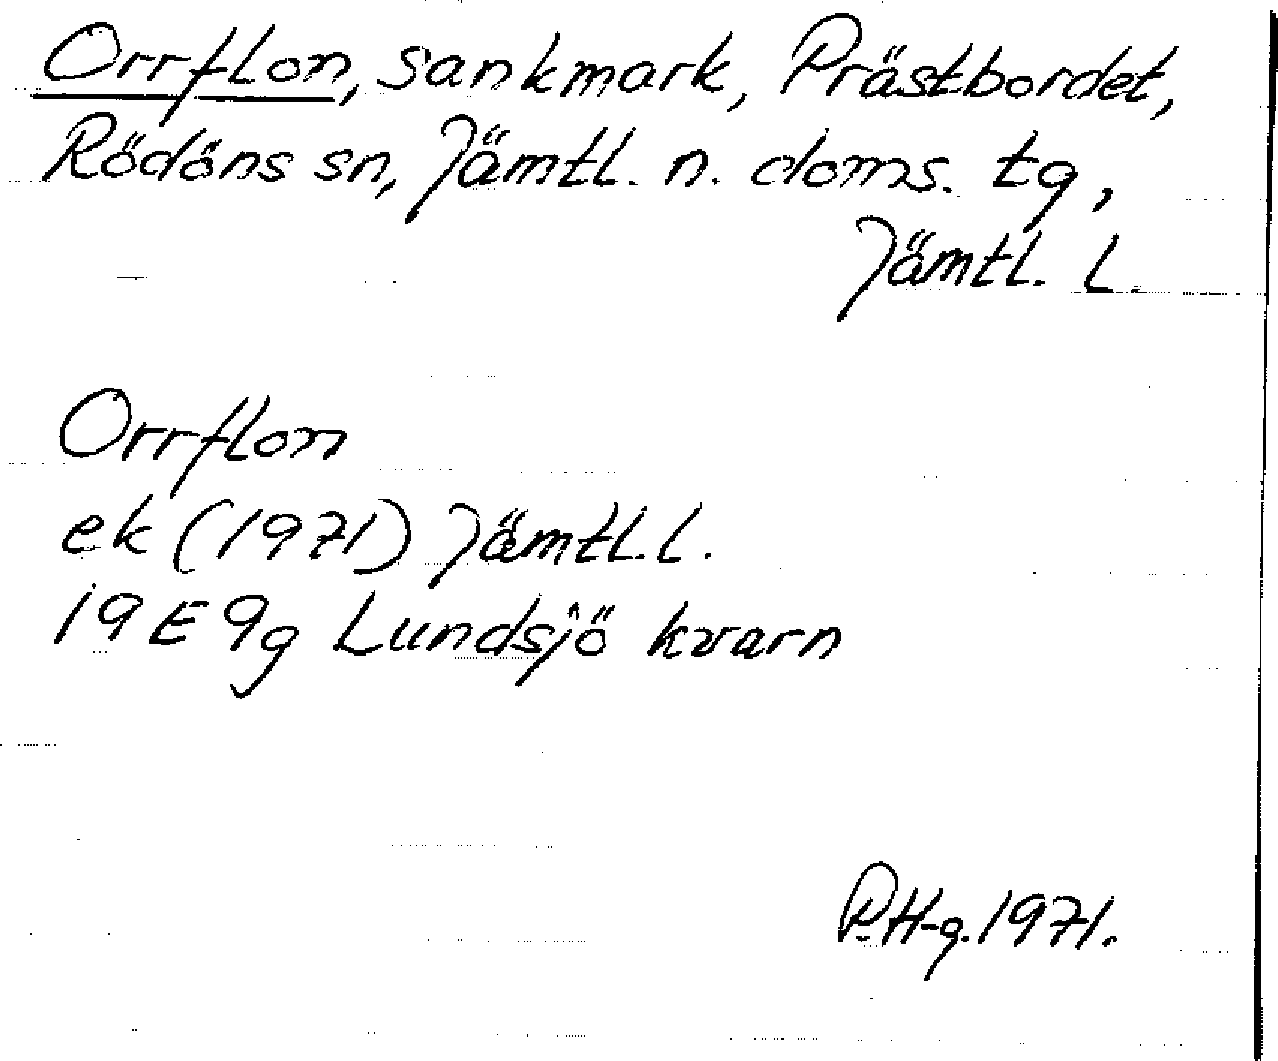 Orrflon, sankmark, Prästbordet,
Rödöns sn, Jämtl. n. doms. tg,
Jämtl. l.
Orrflon
ek (1971) Jämtl. l.
19E 9g Lundsjö kvarn
P. H-g. 1971.